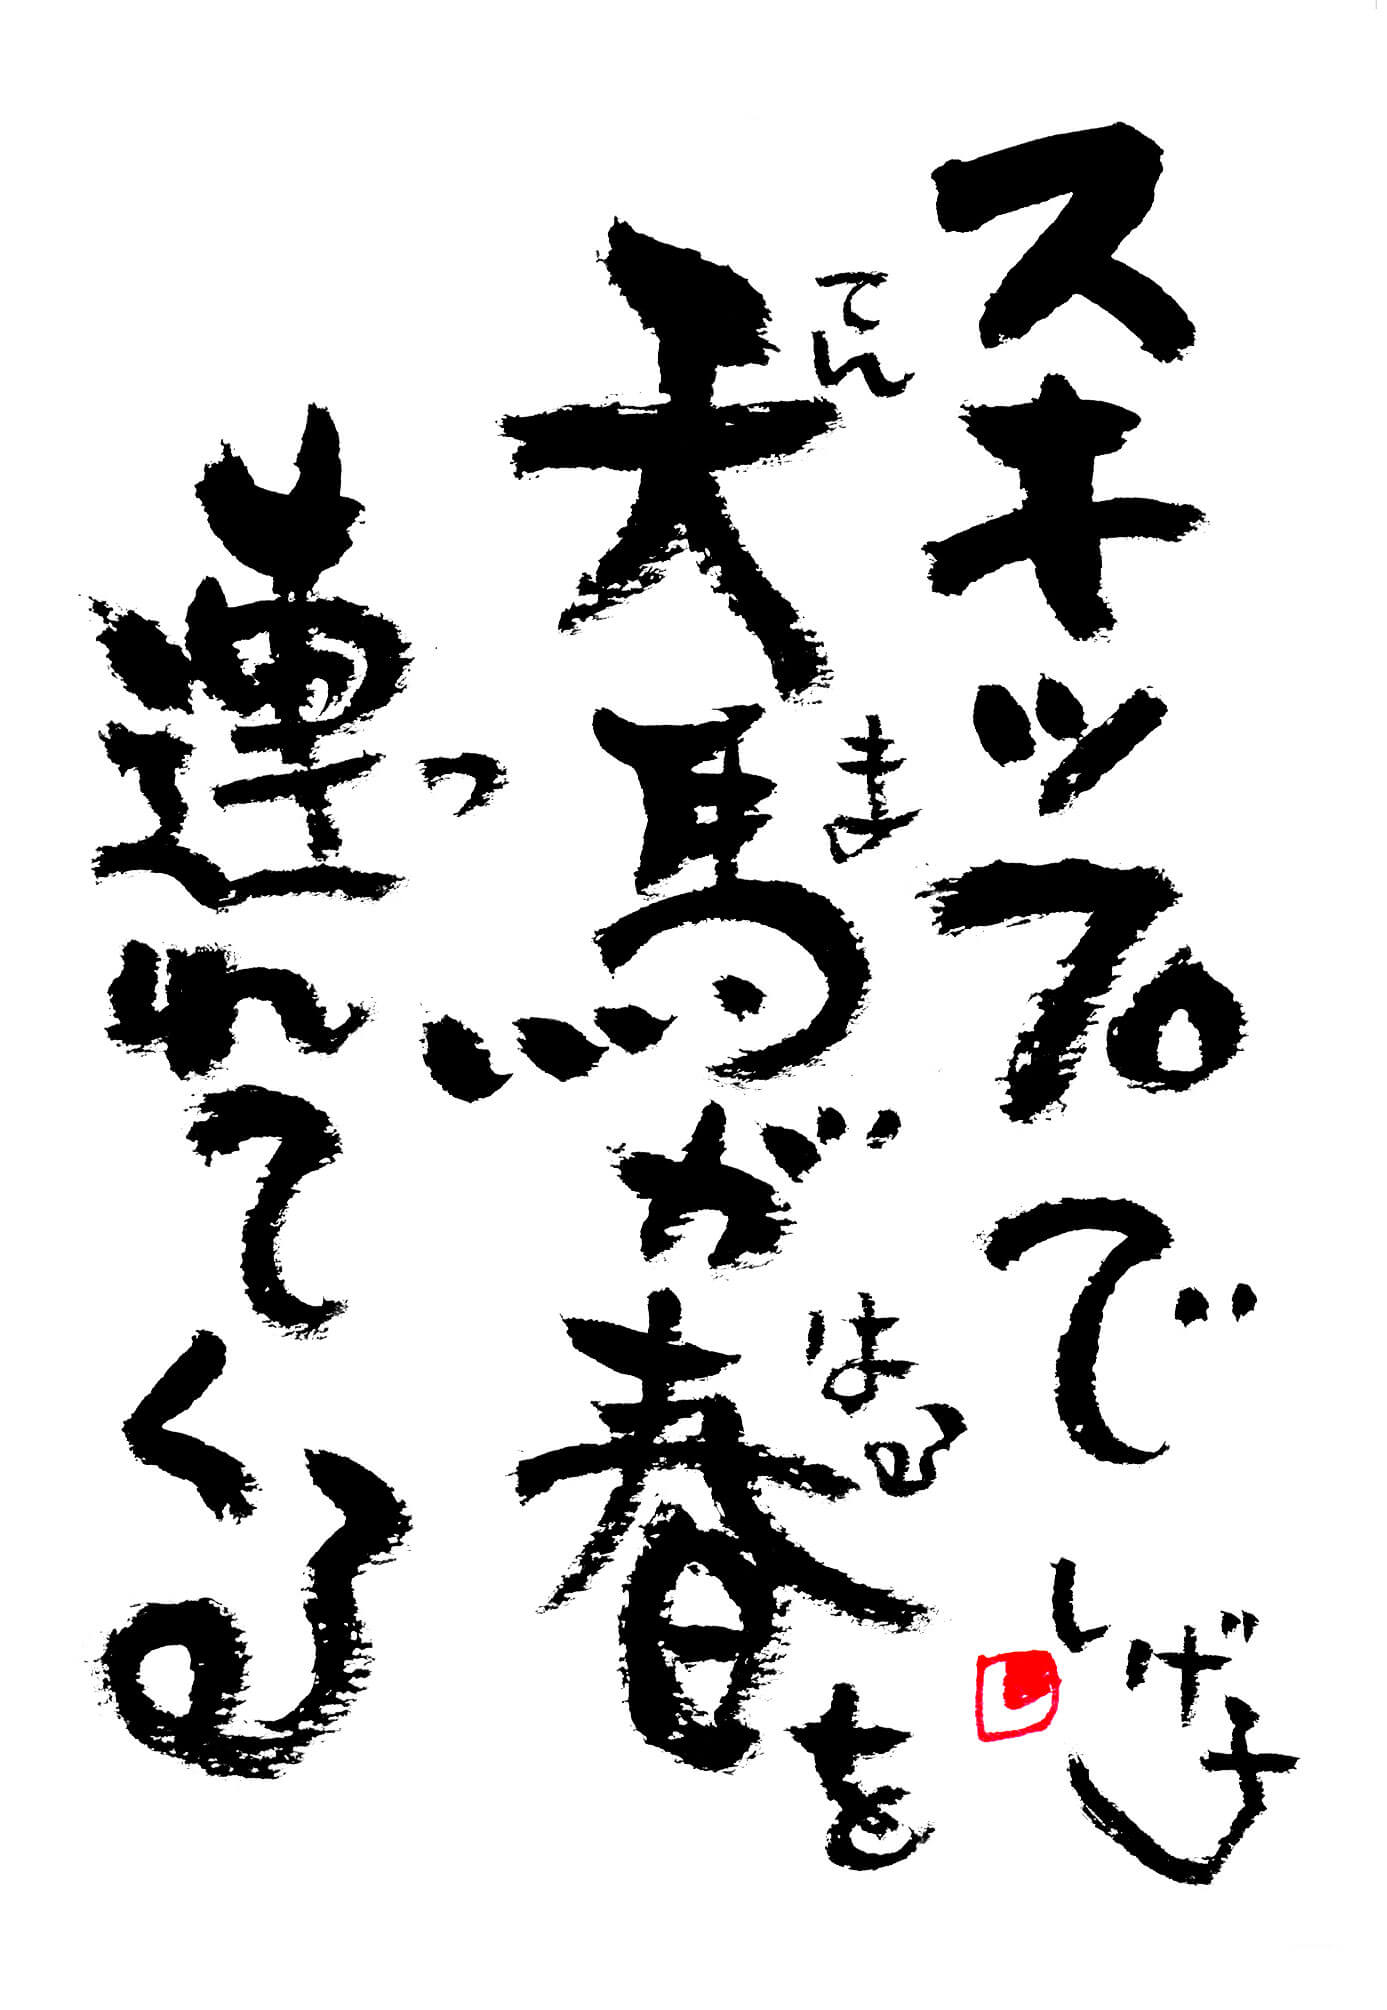 スキップで
天馬が春を
てんま
はる
連れてくる
つ
しげ子
し